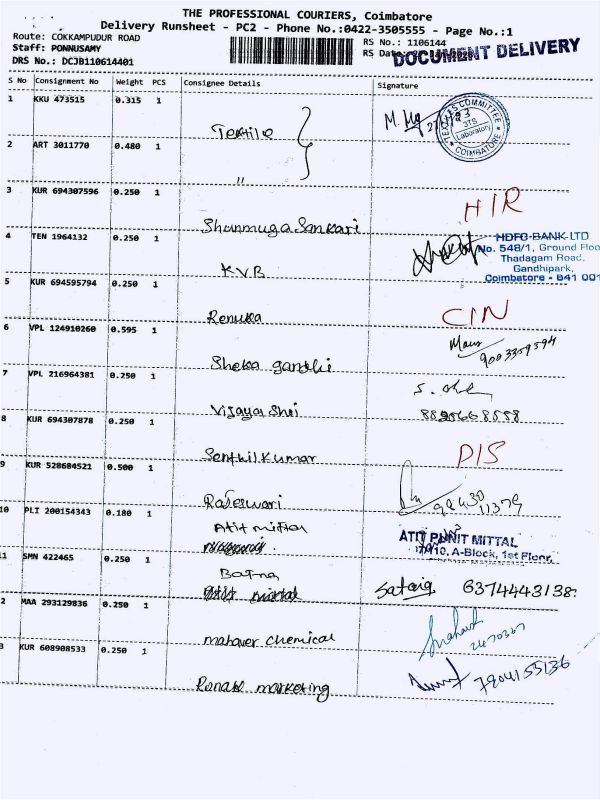 THE PROFESSIONAL COURIERS, Coimbatore
Delivery Runsheet - PC2 - Phone No.:0422-3505555 - Page No.:1
Route: COKKAMPUDUR ROAD
RS No.: 1106144
Staff: PONNUSAMY
RS Date:
DOCUMENT DELIVERY
DRS No.: DCJB110614401
S No Consignment No Weight PCS Consignee Details Signature
1 KKU 473515 0.315 1 Textile
TEXTILES COMMITTEE
3TS
Laboratory
COIMBATORE
2 ART 3011770 0.480 1 "
3 KUR 694307596 0.250 1 Shunmuga Sankari HIR
4 TEN 1964132 0.250 1 KVB
HDFC BANK LTD
No. 548/1, Ground Floo
Thadagam Road,
Gandhipark,
Coimbatore - 641 001
5 KUR 694595794 0.250 1 Renuka CIN
6 VPL 124910260 0.595 1 Sheka gandhi 9003359594
7 VPL 216964381 0.250 1 Vijaya Shri
8 KUR 694307878 0.250 1 Senthil Kumar DIS
9 KUR 528684521 0.500 1 Rajeswari 98430 11379
10 PLI 200154343 0.180 1 Atit mittal
ATIT PUNIT MITTAL
A-Block, 1st Floor,
11 SMN 422465 0.250 1 Batna 6374443138
2 MAA 293129836 0.250 1 mahaver chemical
3 KUR 608908533 0.250 1 Ronak marketing 7904155136